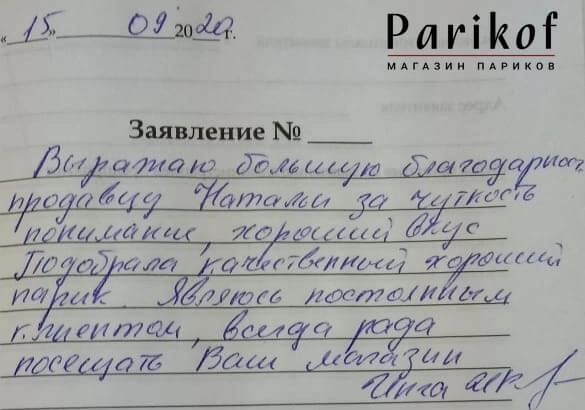 « 15 » 09 2020 г.
Parikof
МАГАЗИН ПАРИКОВ
Заявление №
Выражаю большую благодарность
продавцу Натальи за чуткость
понимание, хороший вкус
Подобрала качественный хороший
парик. Являюсь постоянным
клиентом, всегда рада
посещать Ваш магазин
Инга